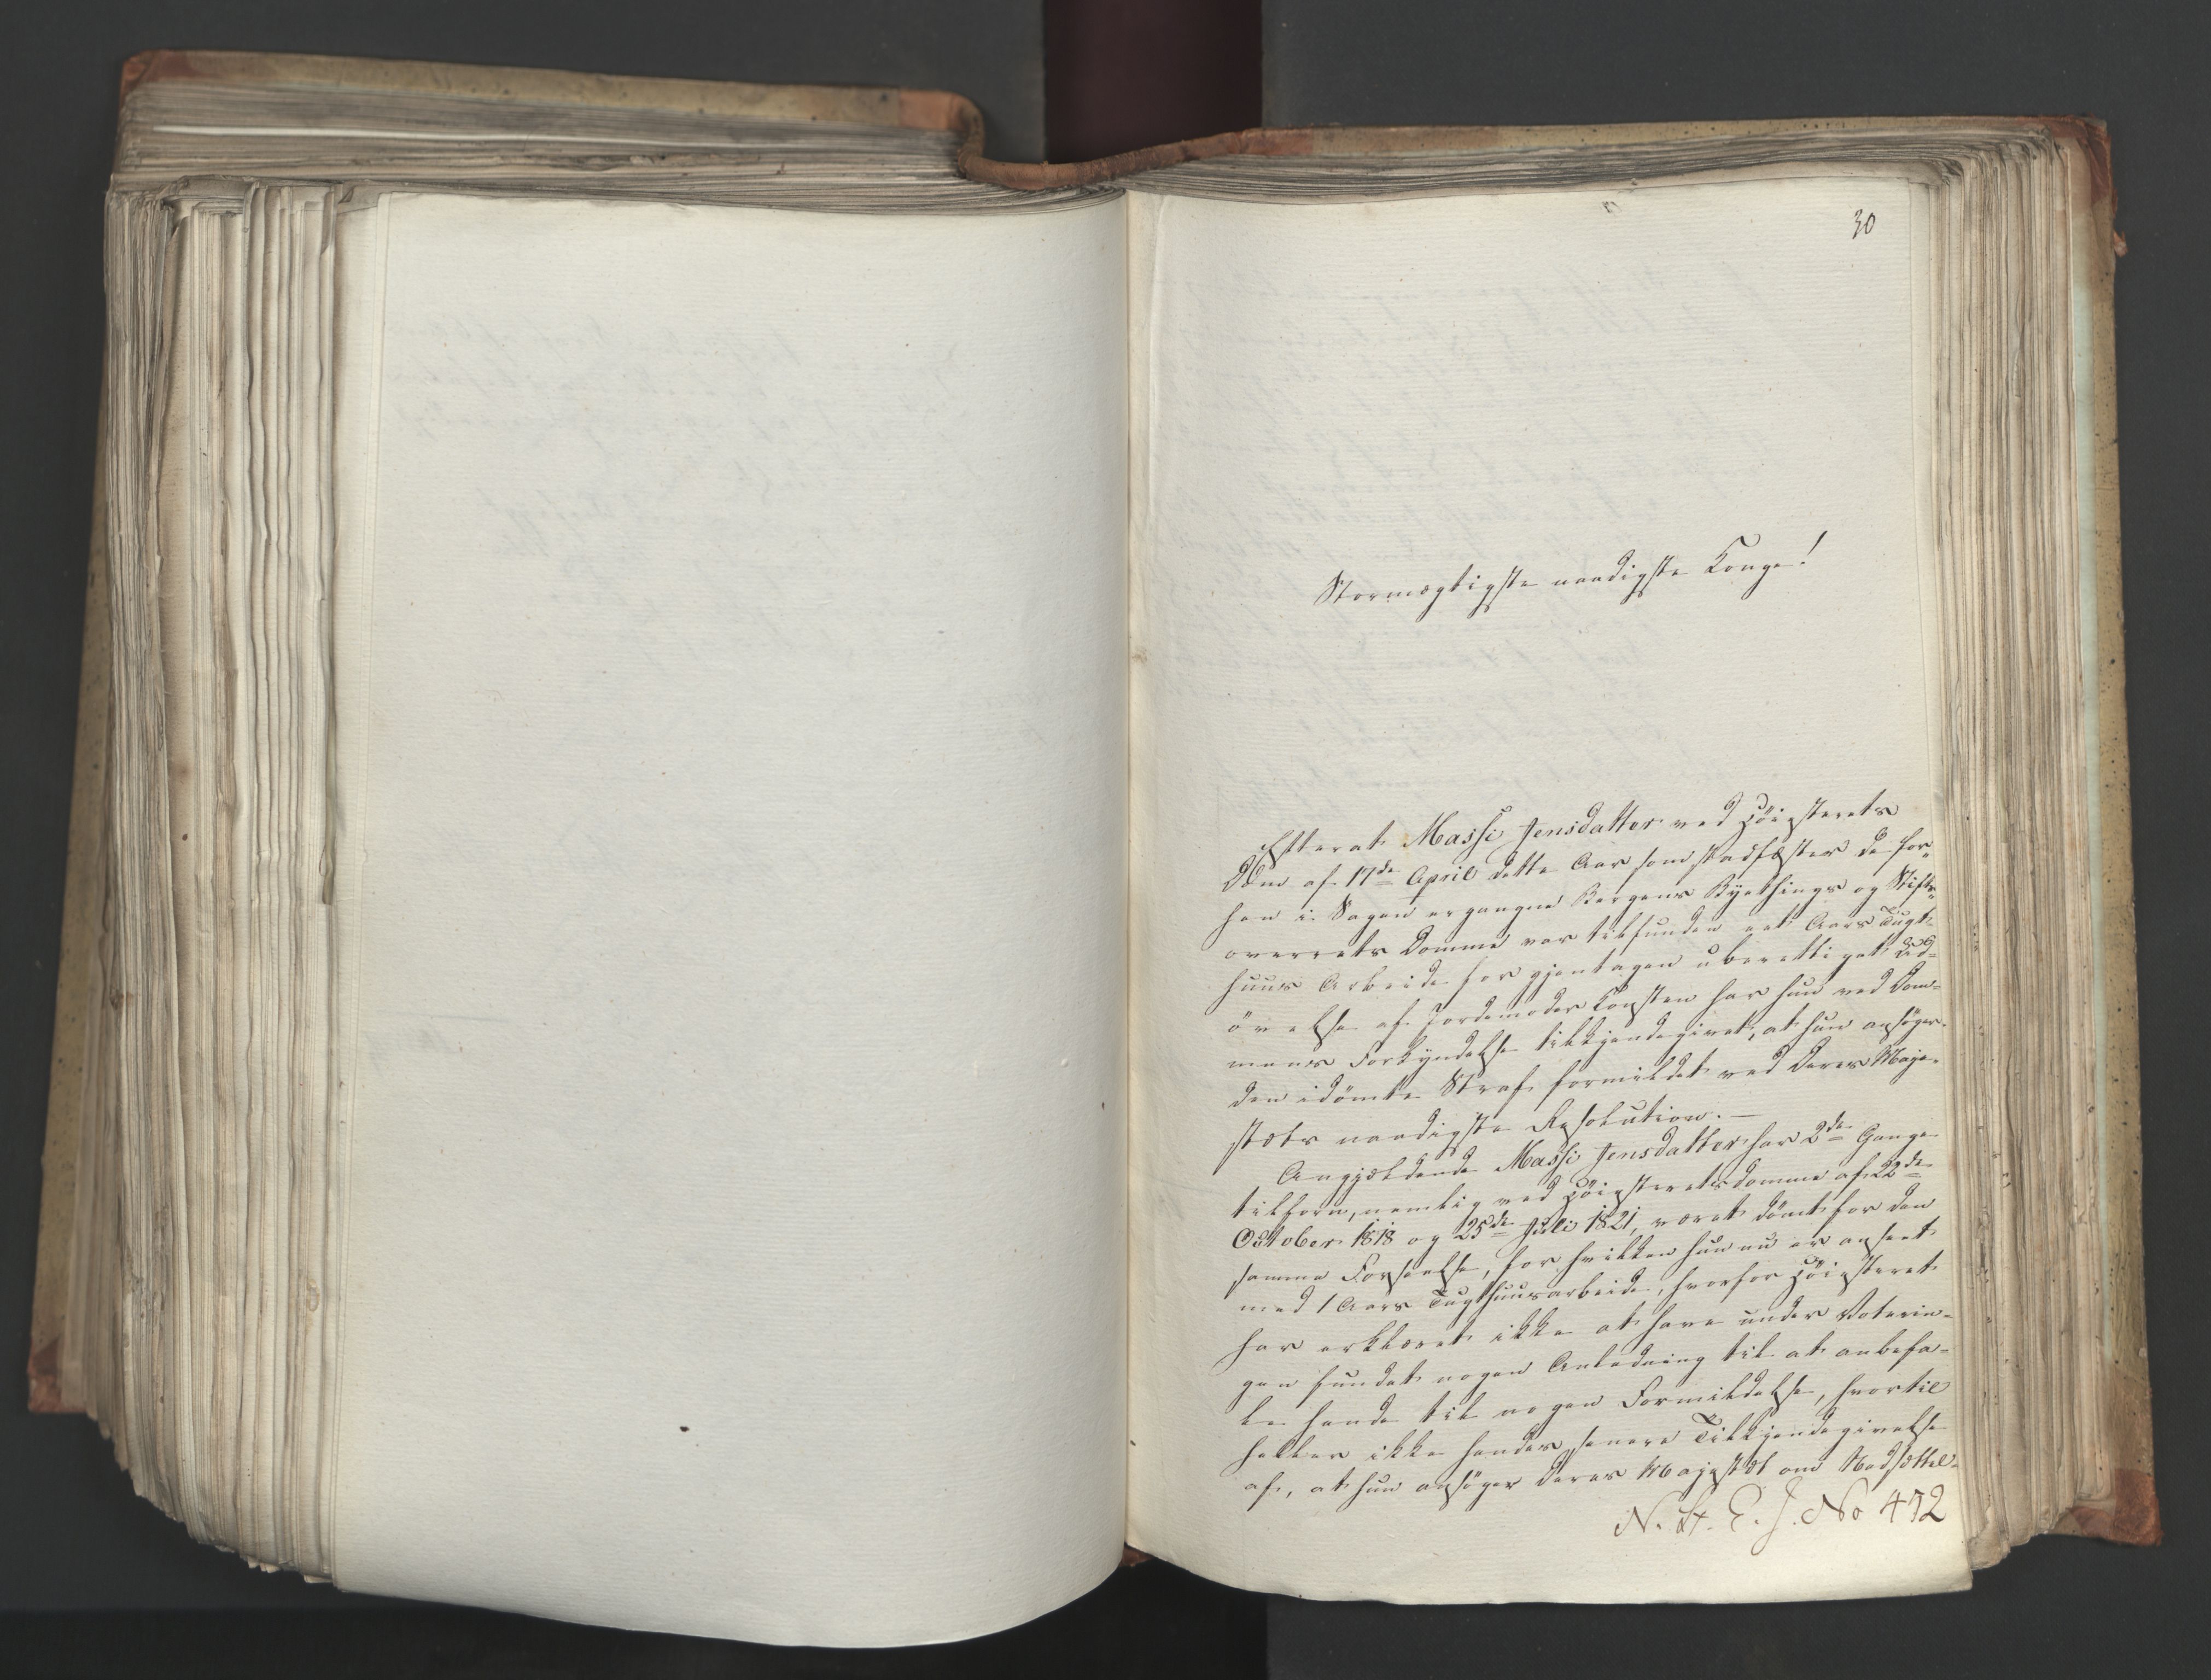 30
Stormægtigste naadigste Konge!
Efterat Massi Jensdatter ved Höiesterets
Dom af 17de April dette Aar som stadfæster de for„
hen i Sagen ergangne Bergens Byethings og Stifts„
overrets Domme var tilfunden eet Aars Tugt-
huus Arbeide for gjentagen uberettiget Ud-
övelse af Jordemoder Konsten har hun ved Dom-
mens Forkyndelse tilkjendegivet, at hun ansöger
den idömte Straf formildet ved Deres Maje-
stæts naadigste Resolution. —
Angjældende Massi Jensdatter har 2de Gange
tilforn, nemlig ved Höiesteretsdomme af 22de
October 1818 og 25de Juli 1821, været dömt for den
samme Forseelse, for hvilken hun nu er anseet
med 1 Aars Tugthuusarbeide, hvorfor Höiesteret
har erklæret ikke at have under Voterin-
gen fundet nogen Anledning til at anbefa-
le hende til nogen Formildelse, hvortil
heller ikke hendes senere Tilkjendegivelse
af, at hun ansöger Deres Majestæt om Nedsættel-
N. St. E. J. No 472